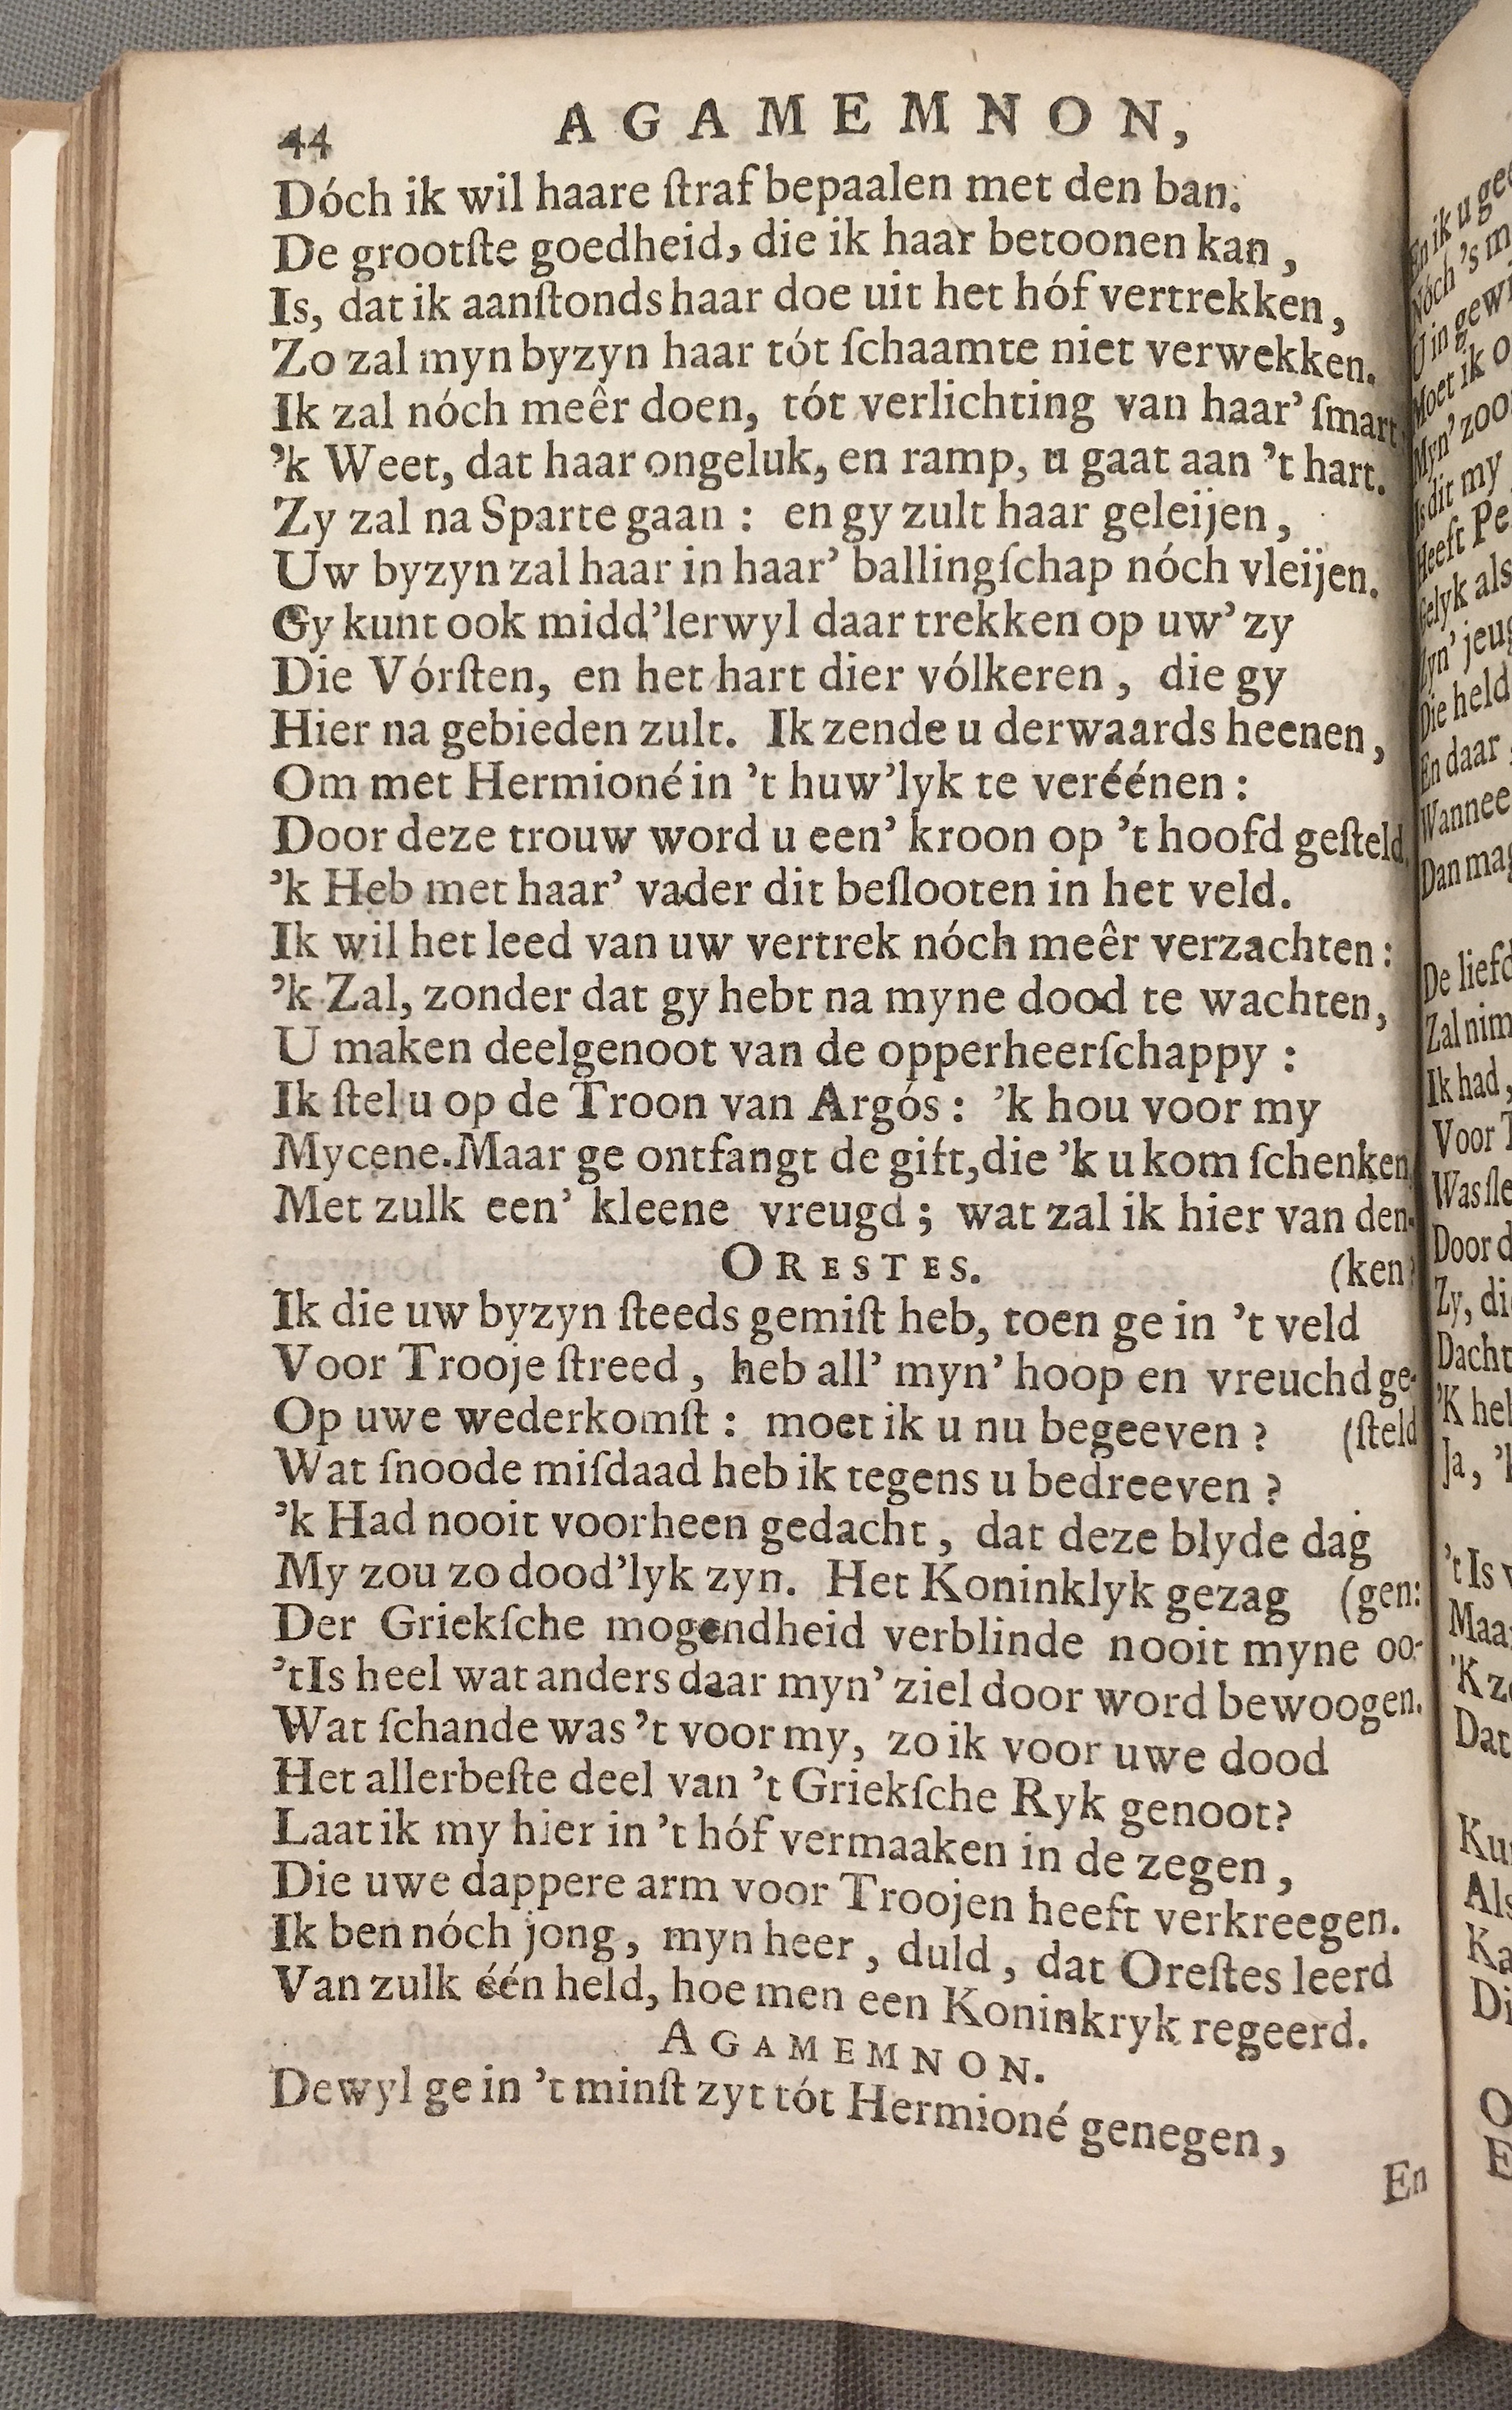 44 AGAMEMNON,
Dóch ik wil haare ſtraf bepaalen met den ban.
De grootſte goedheid, die ik haar betoonen kan,
Is, dat ik aanſtonds haar doe uit het hóf vertrekken,
Zo zal myn byzyn haar tót ſchaamte niet verwekken.
Ik zal nóch meêr doen, tót verlichting van haar' ſmart
'k Weet, dat haar ongeluk, en ramp, u gaat aan 't hart.
Zy zal na Sparte gaan: en gy zult haar geleijen,
Uw byzyn zal haar in haar' ballingſchap nóch vleijen.
Gy kunt ook midd'lerwyl daar trekken op uw' zy
Die Vórſten, en het hart dier vólkeren, die gy
Hier na gebieden zult. Ik zende u derwaards heenen,
Om met Hermioné in 't huw'lyk te veréénen:
Door deze trouw word u een' kroon op 't hoofd geſteld,
'k Heb met haar' vader dit beſlooten in het veld.
Ik wil het leed van uw vertrek nóch meêr verzachten:
'k Zal, zonder dat gy hebt na myne dood te wachten,
U maken deelgenoot van de opperheerſchappy:
Ik ſtel u op de Troon van Argós: 'k hou voor my
Mycene. Maar ge ontfangt de gift, die 'k u kom ſchenken
Met zulk een' kleene vreugd; wat zal ik hier van den-
ORESTES. (ken?
Ik die uw byzyn ſteeds gemiſt heb, toen ge in 't veld
Voor Trooje ſtreed, heb all' myn' hoop en vreuchd ge-
Op uwe wederkomſt: moet ik u nu begeeven? (ſteld
Wat ſnoode miſdaad heb ik tegens u bedreeven?
'k Had nooit voorheen gedacht, dat deze blyde dag
My zou zo dood'lyk zyn. Het Koninklyk gezag (gen:
Der Griekſche mogendheid verblinde nooit myne oo-
't Is heel wat anders daar myn' ziel door word bewoogen.
Wat ſchande was 't voor my, zo ik voor uwe dood
Het allerbeſte deel van 't Griekſche Ryk genoot?
Laat ik my hier in 't hóf vermaaken in de zegen,
Die uwe dappere arm voor Troojen heeft verkreegen.
Ik ben nóch jong, myn heer, duld, dat Oreſtes leerd
Van zulk één held, hoe men een Koninkryk regeerd.
AGAMEMNON.
Dewyl ge in 't minſt zyt tót Hermioné genegen,
En